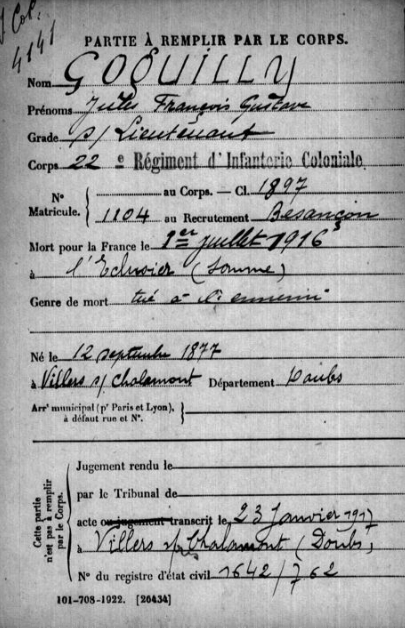 J Col.
4141
PARTIE À REMPLIR PAR LE CORPS.
Nom GOGUILLY
Prénoms Jules François Gustave
Grade s/ Lieutenant
Corps 22 e Régiment d'Infanterie Coloniale
N° Matricule.
au Corps. — Cl. 1897
1104 au Recrutement Besançon
Mort pour la France le 1er juillet 1916
à l'Eclusier (Somme)
Genre de mort tué à l'ennemi
Né le 12 septembre 1877
à Villers s/ Chalamont Département Doubs
Arrt municipal (pr Paris et Lyon),
à défaut rue et N°.
Cette partie n'est pas à remplir par le Corps.
Jugement rendu le
par le Tribunal de
acte ou jugement transcrit le 23 Janvier 1917
à Villers s/ Chalamont (Doubs)
N° du registre d'état civil 1642/762
101-708-1922. [26434]